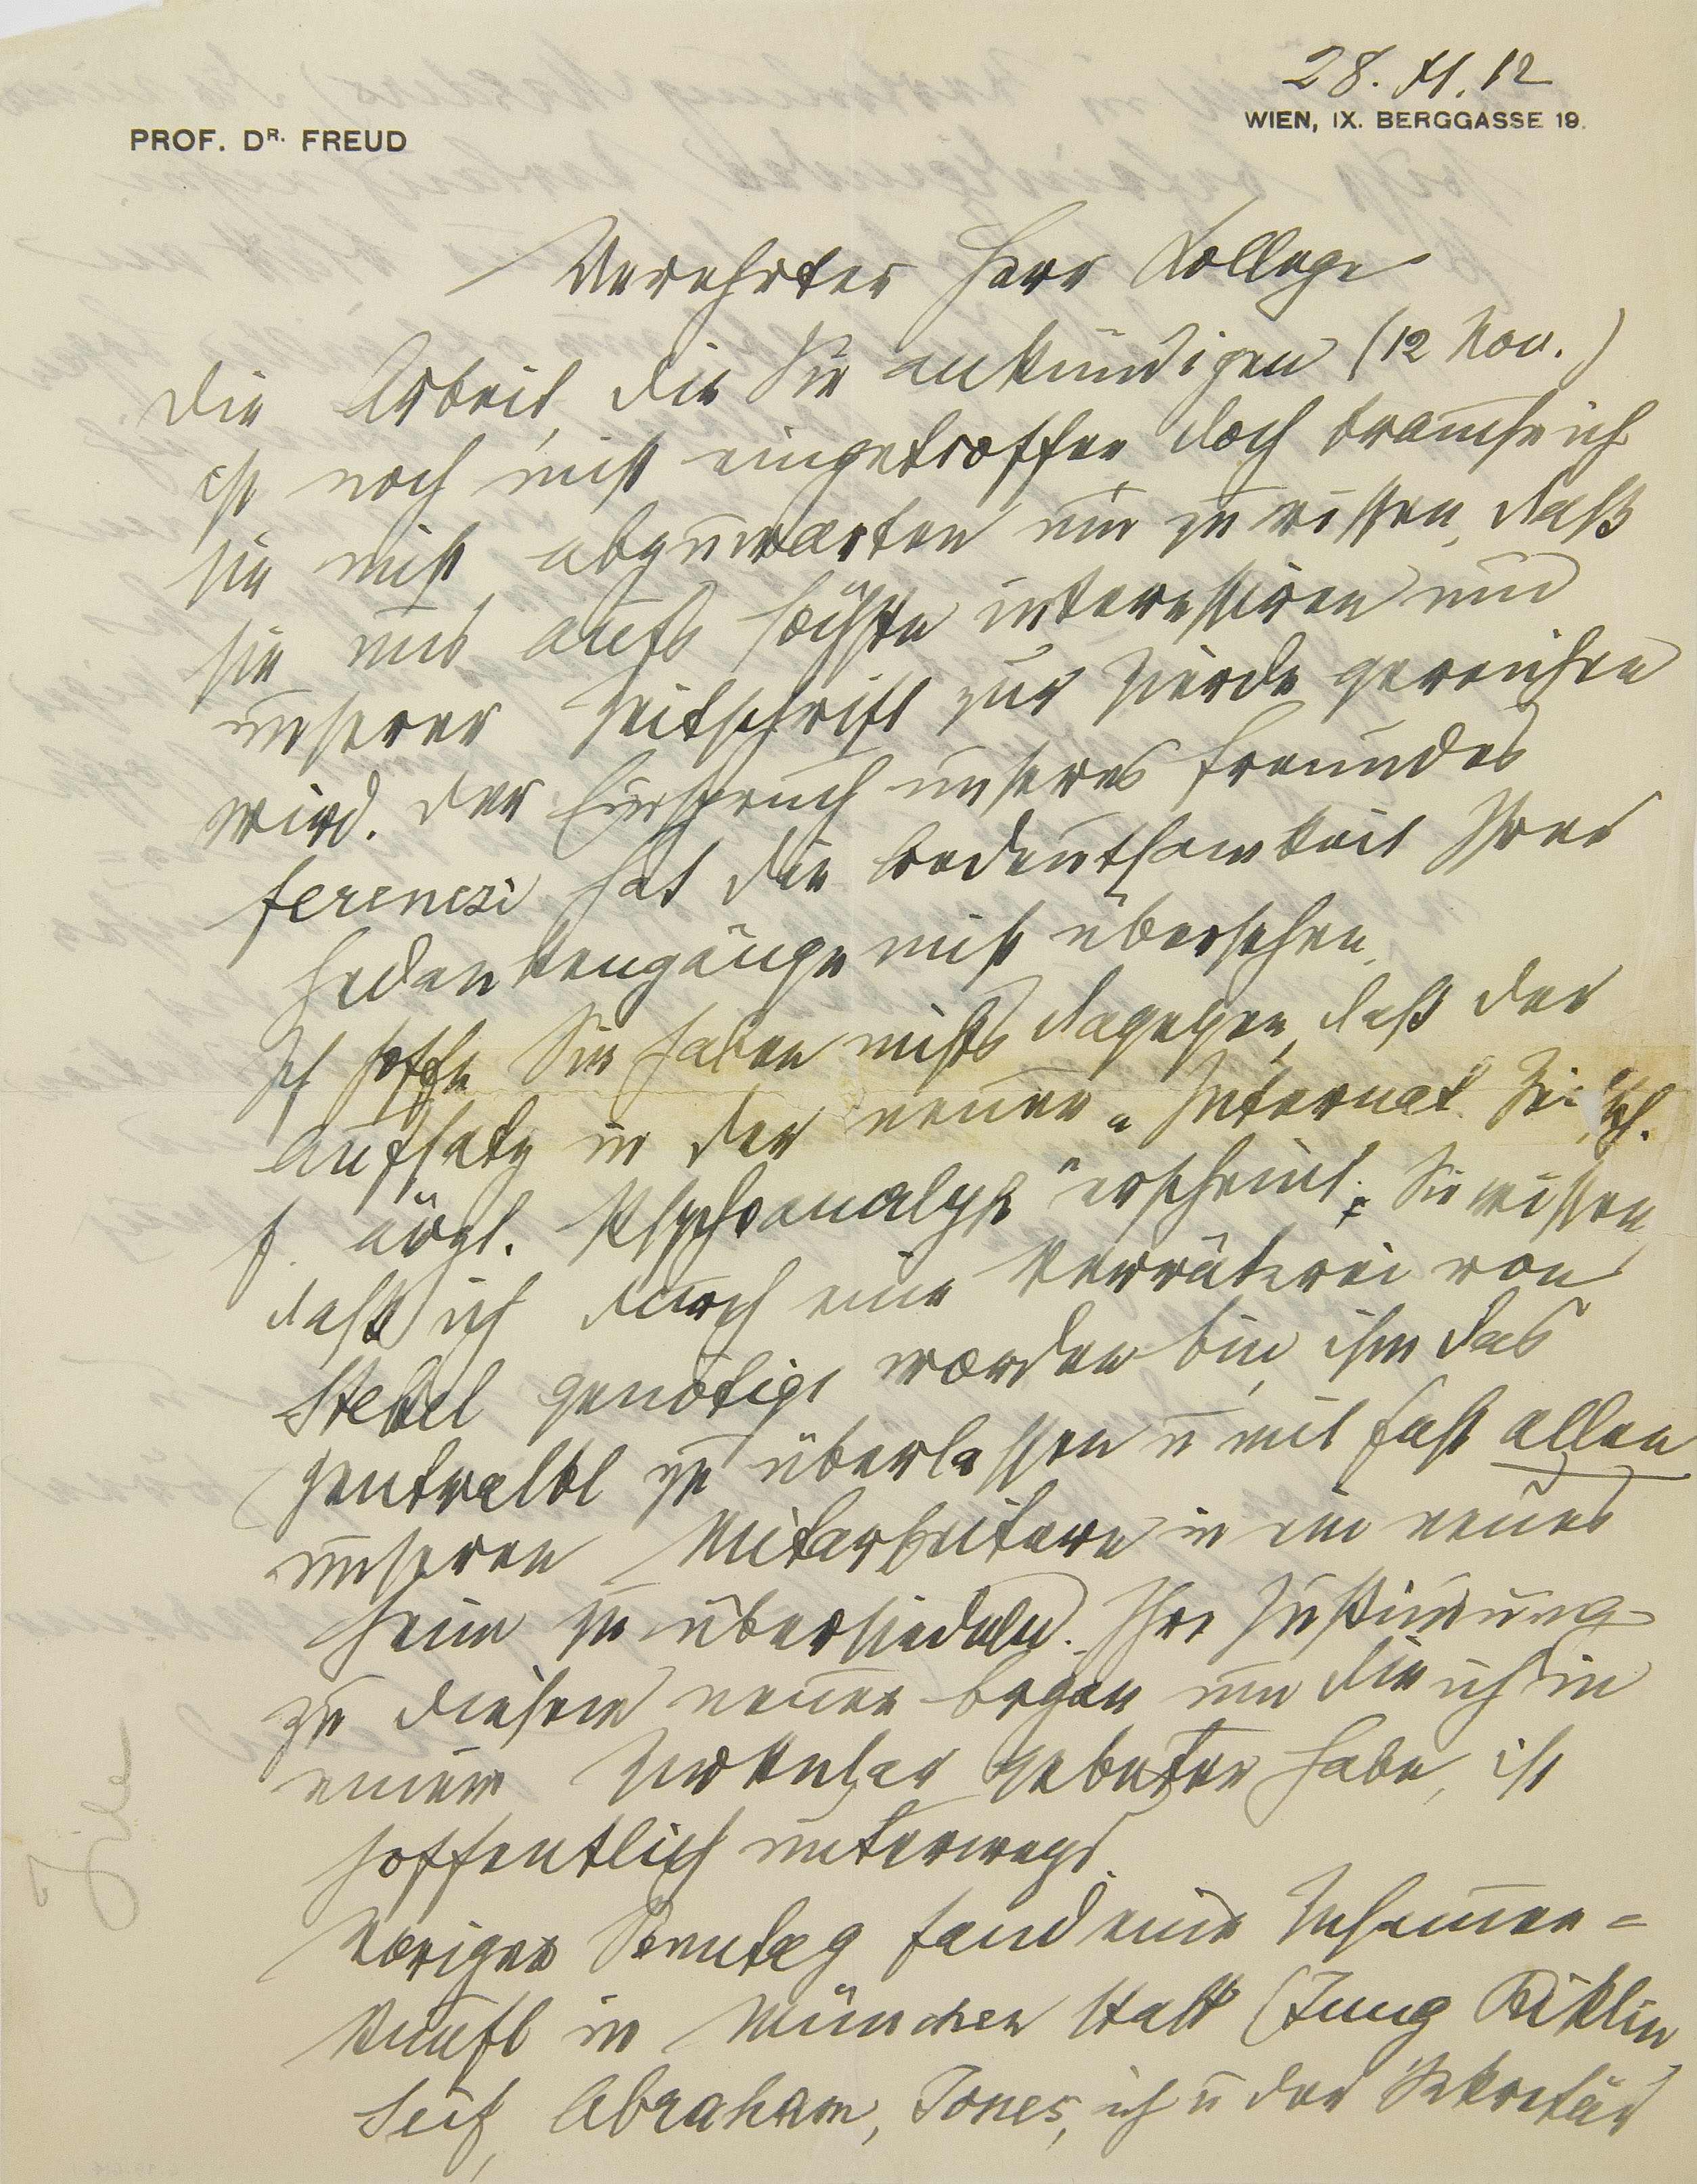 28. XI. 12
PROF. DR. FREUD
WIEN, IX. BERGGASSE 19.
Verehrter Herr Kollege
Die Arbeit, die Sie ankündigen (12 Nov.)
ist noch nicht eingetroffen, doch brauche ich
sie nicht abzuwarten um zu wissen, daß
sie uns aufs höchste interessiren und
unserer Zeitschrift zur Zierde gereichen
wird. Der Einspruch unseres Freundes
Ferenczi hat die Bedeutsamkeit Ihrer
Gedankengänge nicht übersehen.
Ich hoffe Sie haben nichts dagegen, daß der
Aufsatz in der neuen „Internat. Zeitsch.
f. ärztl. Psychoanalyse" erscheint; Sie wissen,
daß ich durch eine Verräterei von
Stekel genötigt worden bin, ihm das
Zentralbl zu überlassen u mit fast allen
unseren Mitarbeitern in ein neues
Heim zu übersiedeln. Ihre Zustimmung
zu diesem neuen Organ um die ich in
einem Zirkular gebeten habe, ist
hoffentlich unterwegs.
Vorigen Sonntag fand eine Zusammen=
kunft in München statt (Jung Riklin
Seif, Abraham, Jones, ich u der Sekretär